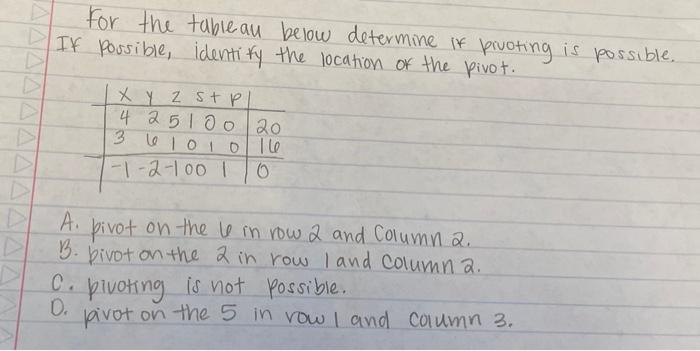 For the tableau below determine if pivoting is possible.
If possible, identify the location of the pivot.
x y z s t p
4 2 5 1 0 0 20
3 6 1 0 1 0 16
-1 -2 -1 0 0 1 0
A. pivot on the 6 in row 2 and Column 2.
B. pivot on the 2 in row 1 and Column 2.
C. pivoting is not possible.
D. pivot on the 5 in row 1 and column 3.